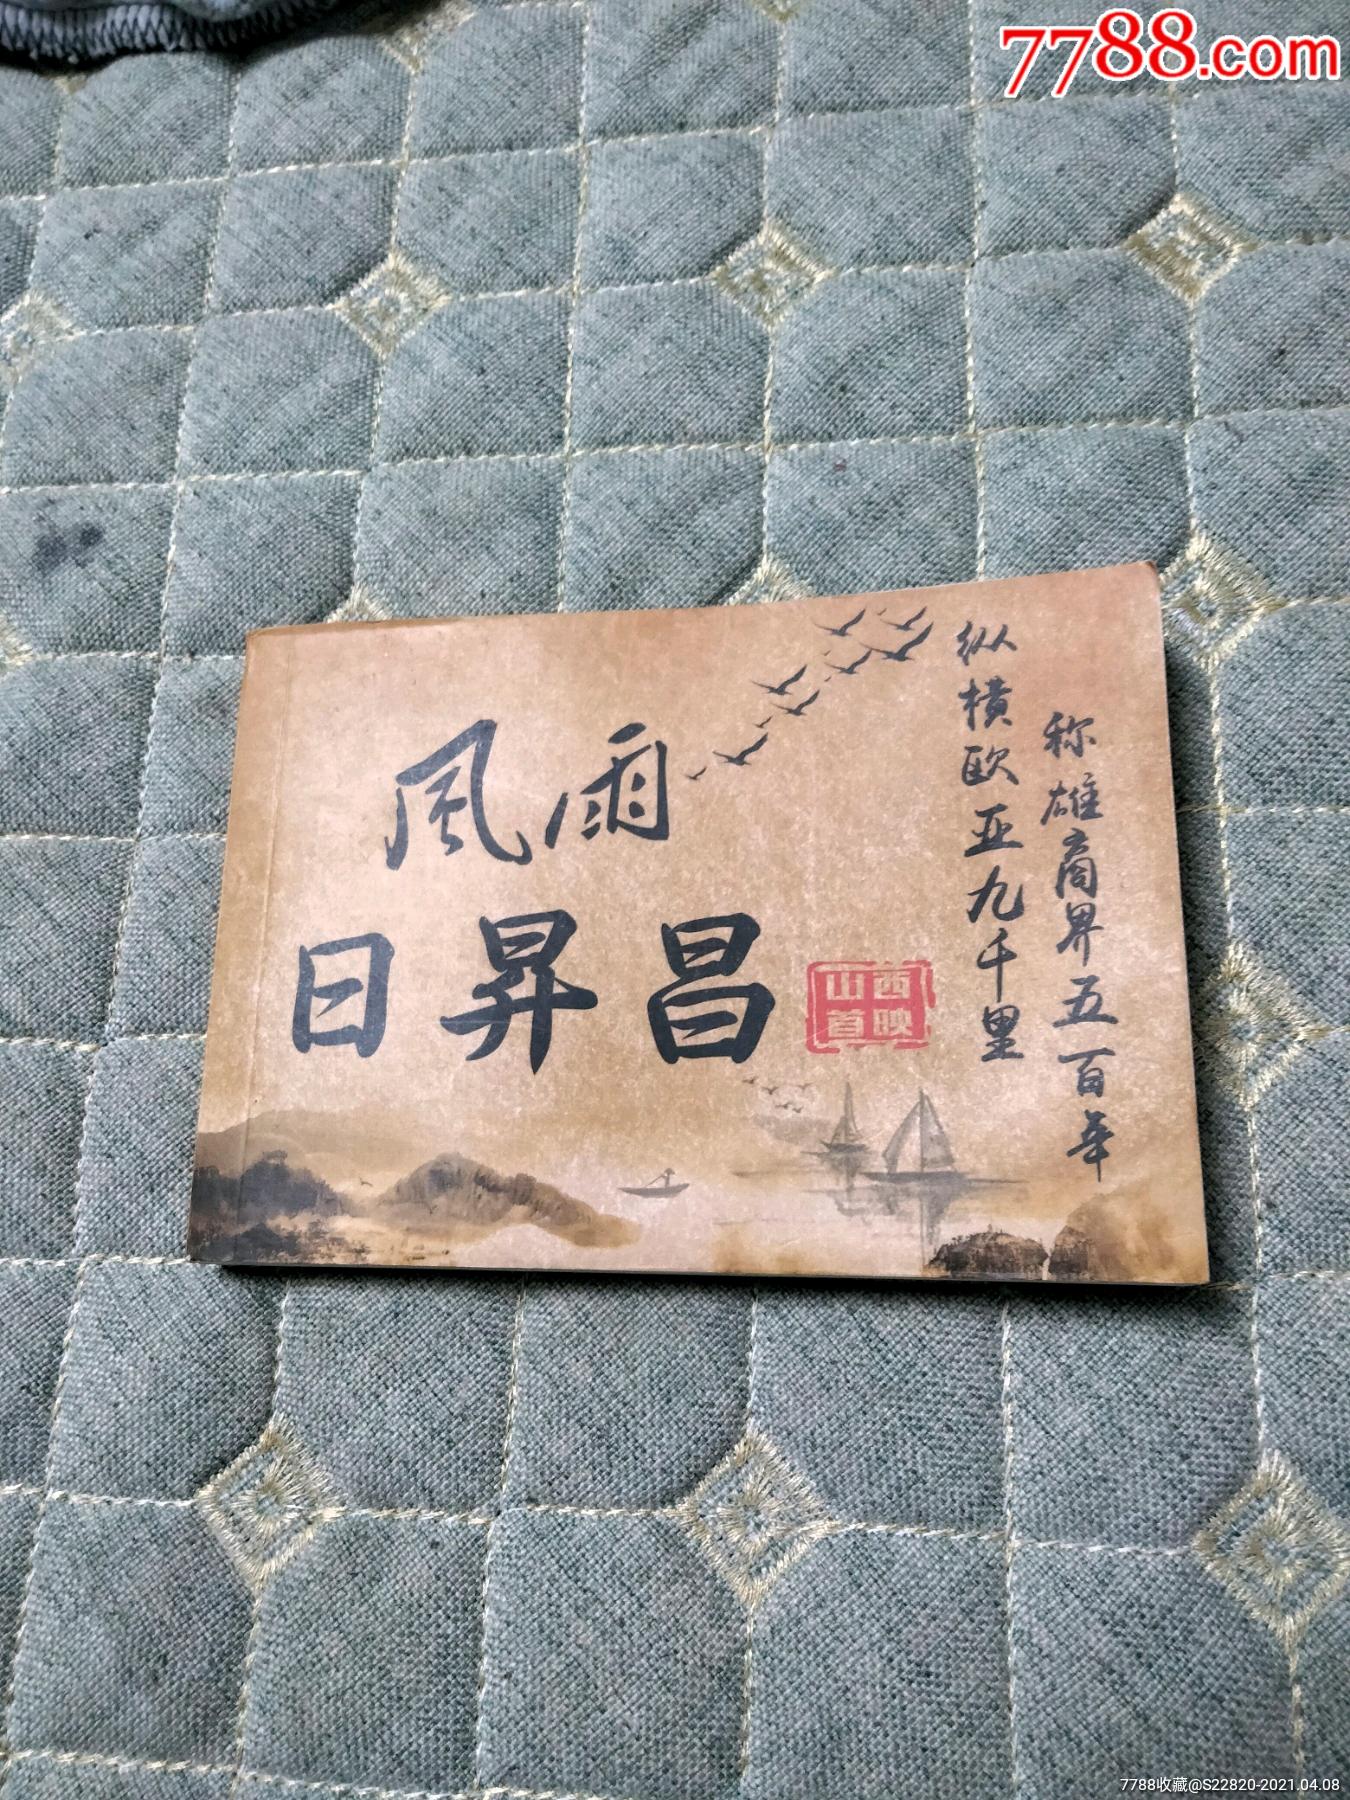 7788.com
纵横欧亚九千里
称雄商界五百年
風雨
日昇昌
山西
首映
7788收藏@S22820-2021.04.08